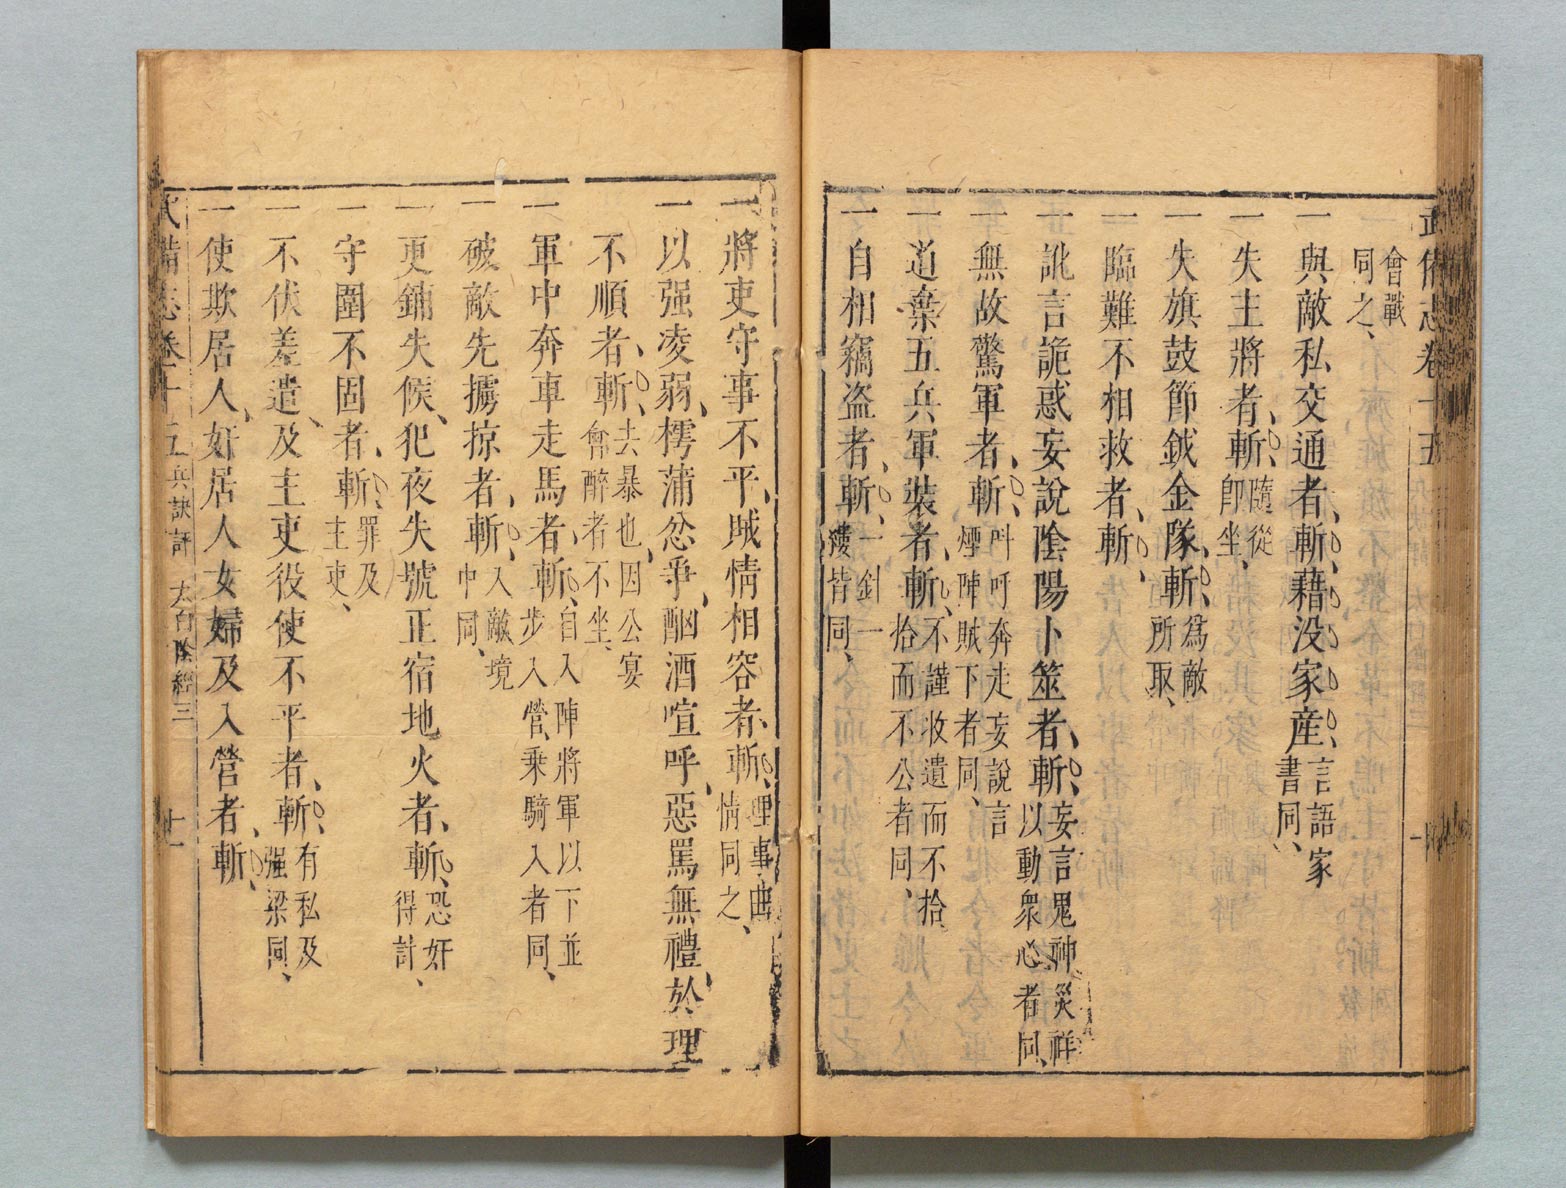 武備志卷十五
會戰
同之、
一與敵私交通者、斬、藉没家産、言語家
書同、
一失主將者、斬、隨從
卽坐、
一失旗鼓節鉞金隊、斬、爲敵
所取、
一臨難不相救者、斬、
一訛言詭惑妄說陰陽卜筮者、斬、妄言鬼神災祥
以動衆心者同、
一無故驚軍者、斬、呌呼奔走妄說言
煙陣賊下者同、
一道棄五兵軍裝者、斬、不謹收遺而不拾
拾而不公者同、
一自相竊盗者、斬、一針一
䙔皆同、
一將吏守事不平、賊情相容者、斬、理事曲
情同之、
一以强凌弱、樗蒲忿爭、酗酒喧呼、惡罵無禮、於理
不順者、斬、去暴也、因公宴
會醉者不坐、
一軍中奔車走馬者、斬、自入陣將軍以下並
步入營、乗騎入者同、
一破敵先擄掠者、斬、入敵境
中同、
一更鋪失候、犯夜失號正宿地火者、斬、恐奸
得計、
一守圍不固者、斬、罪及
主吏、
一不伏差遣、及主吏役使不平者、斬、有私及
强梁同、
一使欺居人、奸居人女婦及入營者、斬、
武備志卷十五 兵訣評 太白陰經三 十一